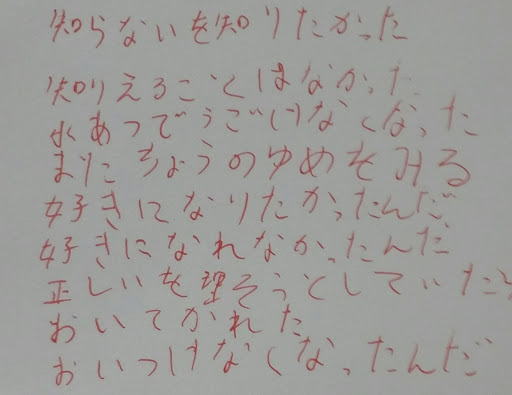 知らないを知りたかった
知りえることはなかった
水あつでうごけなくなった
まりにちょうのゆめをみる
好きになりたかったんだ
好きになれなかったんだ
正しいを理そうとしていたら
おいてかれた
おいつけなくなったんだ